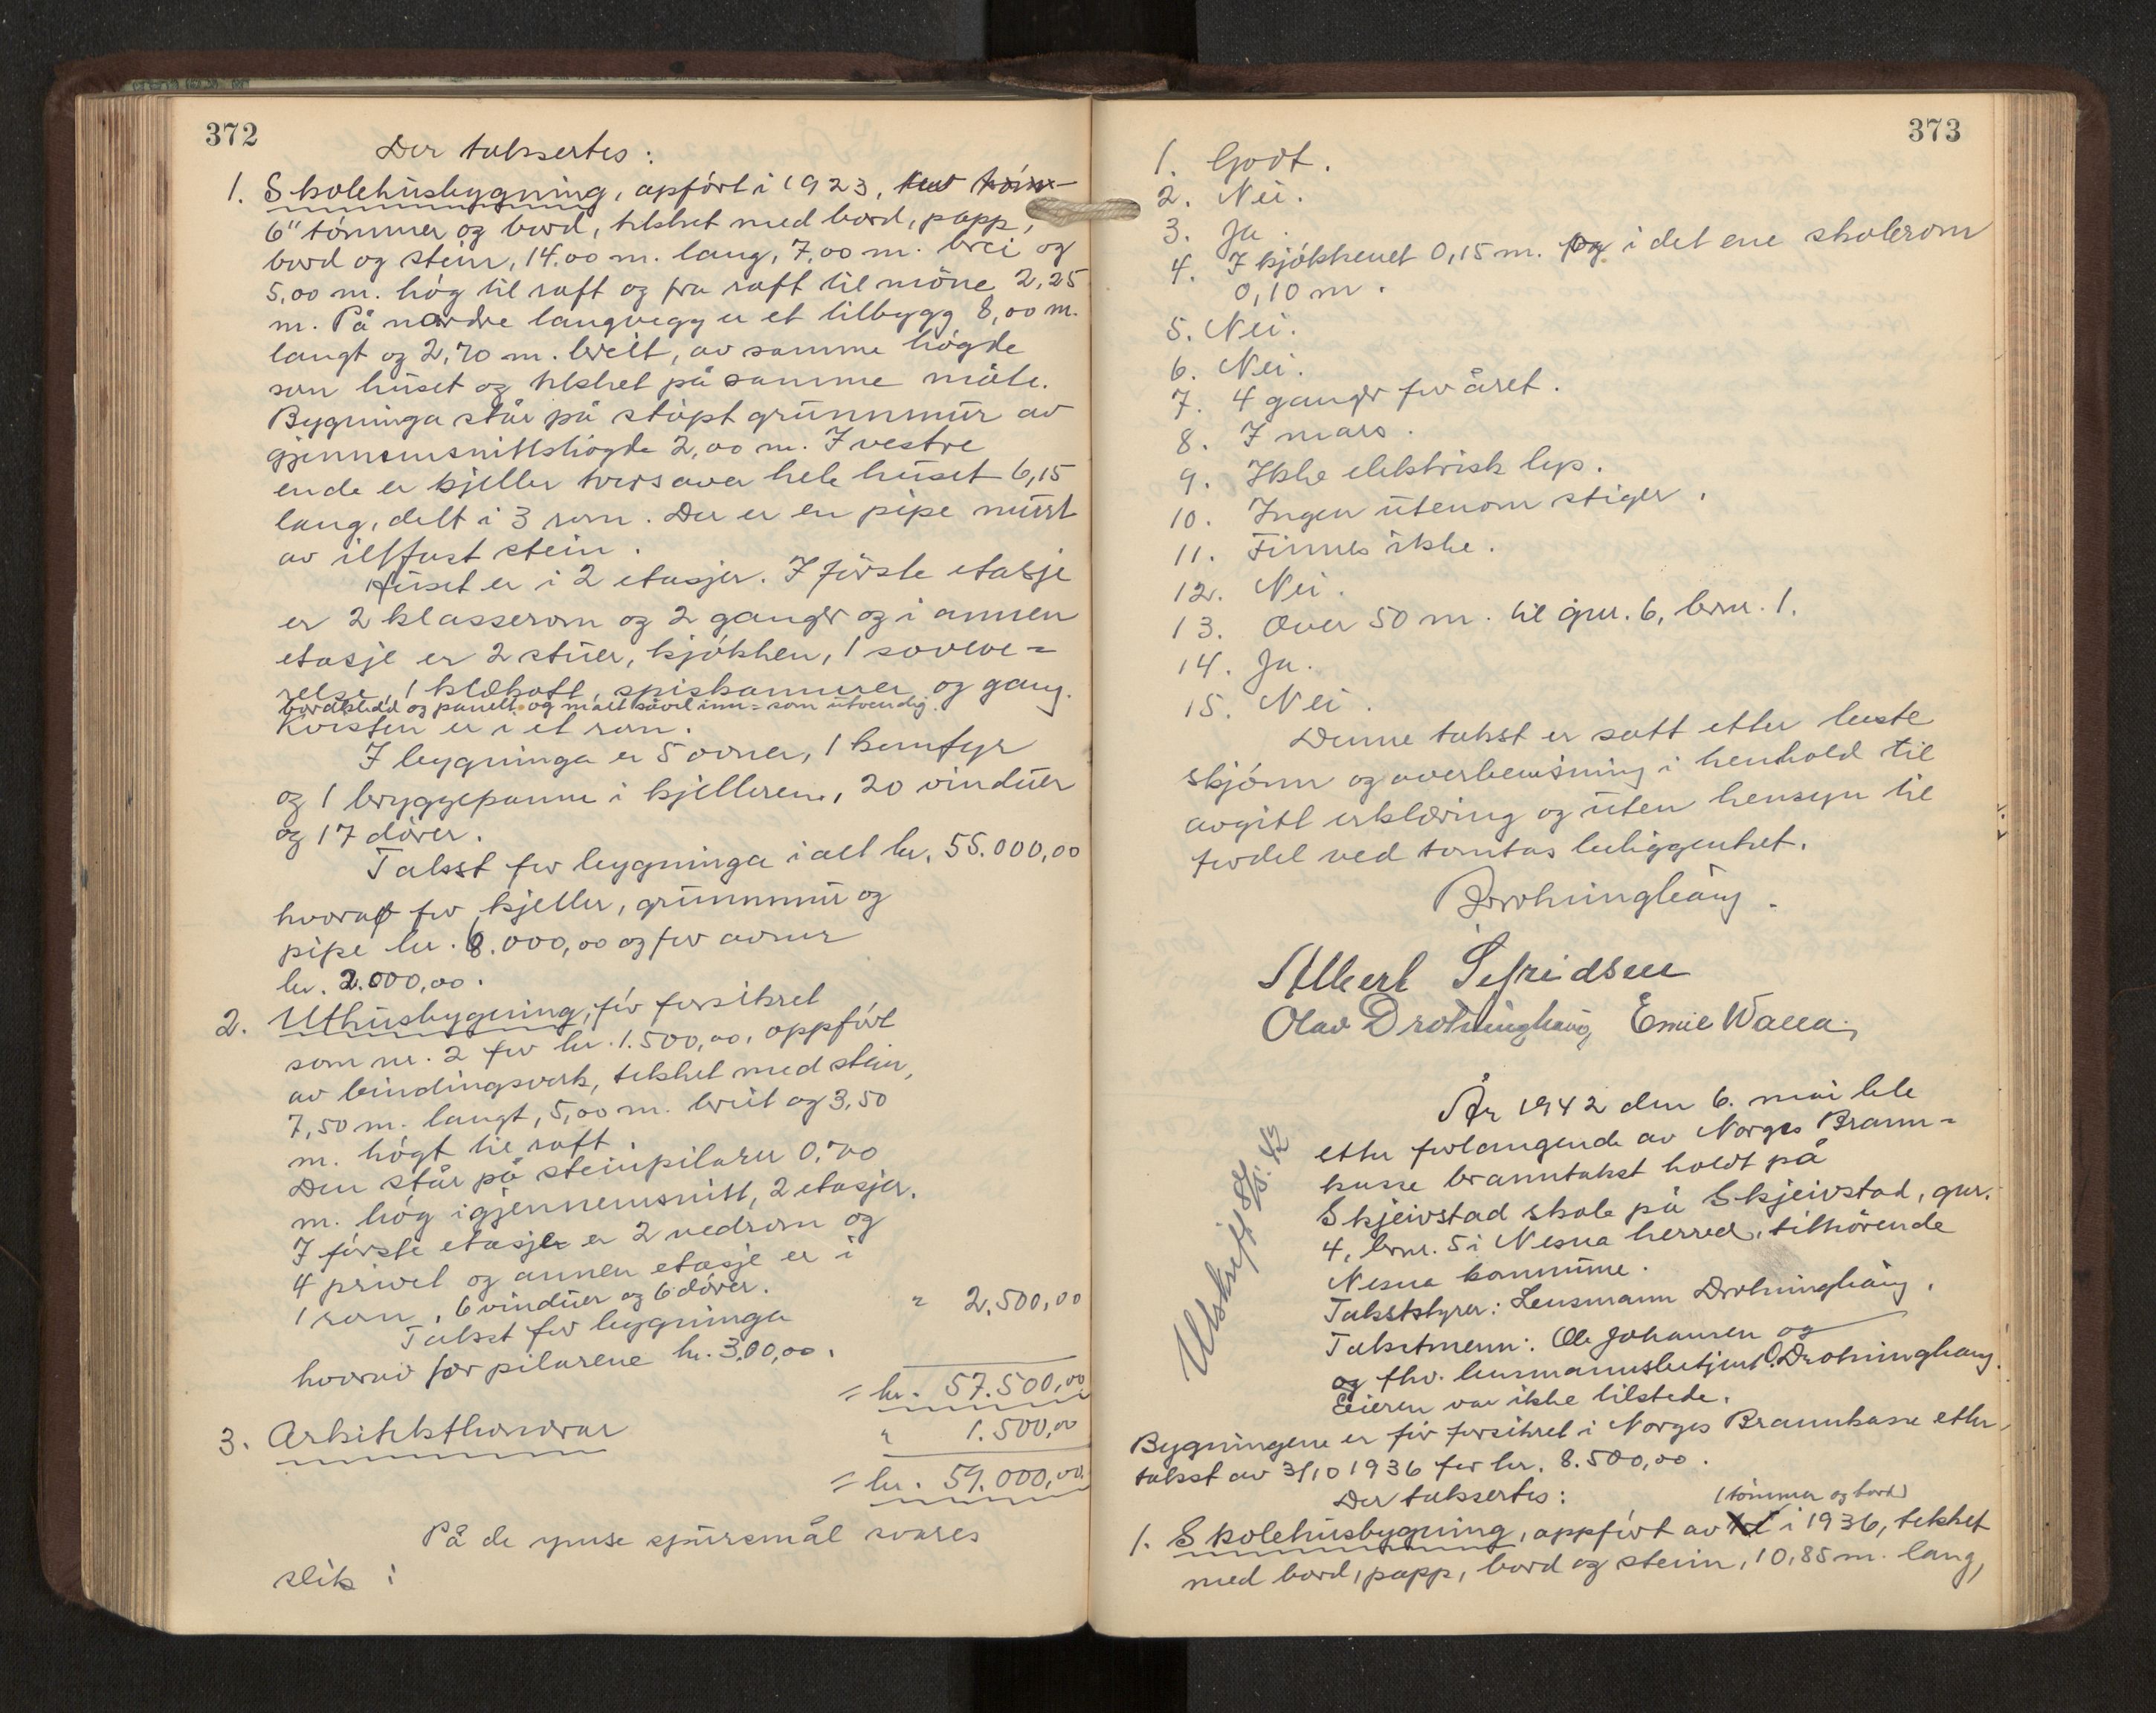 372
Der taksertes:
1. Skolehusbygning, opført i 1923, tøm-
6" tømmer og bord, tekket med bord, papp,
bord og stein, 14.00 m. lang, 7,00 m. brei og
5,00 m. høg til raft og fra raft til møne 2,25
m. På nordre langvegg er et tilbygg 8,00 m.
langt og 2,70 m. breit, av samme høgde
som huset og tekket på samme måte.
Bygninga står på støpt grunnmur av
gjennemsnittshøgde 2,00 m. I vestre
ende er kjeller tvers over hele huset 6,15
lang, delt i 3 rom. Der er en pipe murt
av illfast stein.
Huset er i 2 etasjer. I første etasje
er 2 klasserom og 2 ganger og i annen
etasje er 2 stuer, kjøkken, 1 sovevæ=
relse, 1 klekott, spiskammer og gang.
bordkledd og panelt og malt såvel inn= som utvendig.
Kvisten er i et rom.
I bygninga er 5 ovner, 1 komfyr
og 1 bryggepanne i kjelleren, 20 vinduer
og 17 dører.
Takst for bygninga i alt kr. 55.000,00
hvorav for kjeller, grunnmur og
pipe kr. 8.000,00 og for ovner
kr. 2.000,00.
2. Uthusbygning, før forsikret
som nr. 2 for kr. 1.500,00, oppført
av bindingsverk, tekket med stein,
7,50 m. langt, 5,00 m. breit og 3,50
m. høgt til raft.
Den står på steinpilarer 0,70
m. høg i gjennemsnitt, 2 etasjer.
I første etasje er 2 vedrom og
4 privet og annen etasje er i
1 rom, 6 vinduer og 6 dører.
Takst for bygninga " 2.500,00
hvorav for pilarene kr. 300,00.
= kr. 57.500,00
3. Arkitekthonorar " 1.500,00
= kr. 59.000,00
På de ymse spursmål svares
slik:
373
1. Godt.
2. Nei.
3. Ja.
4. I kjøkkenet 0,15 m. og i det ene skolerom
0,10 m.
5. Nei.
6. Nei.
7. 4 ganger for året.
8. I mars.
9. Ikke elektrisk lys.
10. Ingen utenom stiger.
11. Finnes ikke.
12. Nei.
13. Over 50 m. til gnr. 6, brnr. 1.
14. Ja.
15. Nei.
Denne takst er satt etter beste
skjønn og overbevisning i henhold til
avgitt erklæring og uten hensyn til
fordel ved tomtas beliggenhet.
Drotninghaug.
Albert Sefridsen
Olav Drotninghaug Emil Walla
År 1942 den 6. mai ble
etter forlangende av Norges Brann=
kasse branntakst holdt på
Skjeivstad skole på Skjeivstad, gnr.
4, brnr. 5 i Nesna herred, tilhørende
Nesna kommune.
Utskrift 8/5. 42
Takststyrer: Lensmann Drotninghaug.
Takstmenn: Ole Johansen og
og fhv. lensmannsbetjent O. Drotninghaug.
Eieren var ikke tilstede.
Bygningene er før forsikret i Norges Brannkasse etter
takst av 3/10 1936 for kr. 8.500,00.
Der taksertes:
(tømmer og bord)
1. Skolehusbygning, oppført av i 1936, tekket
med bord, papp, bord og stein, 10,85 m. lang,